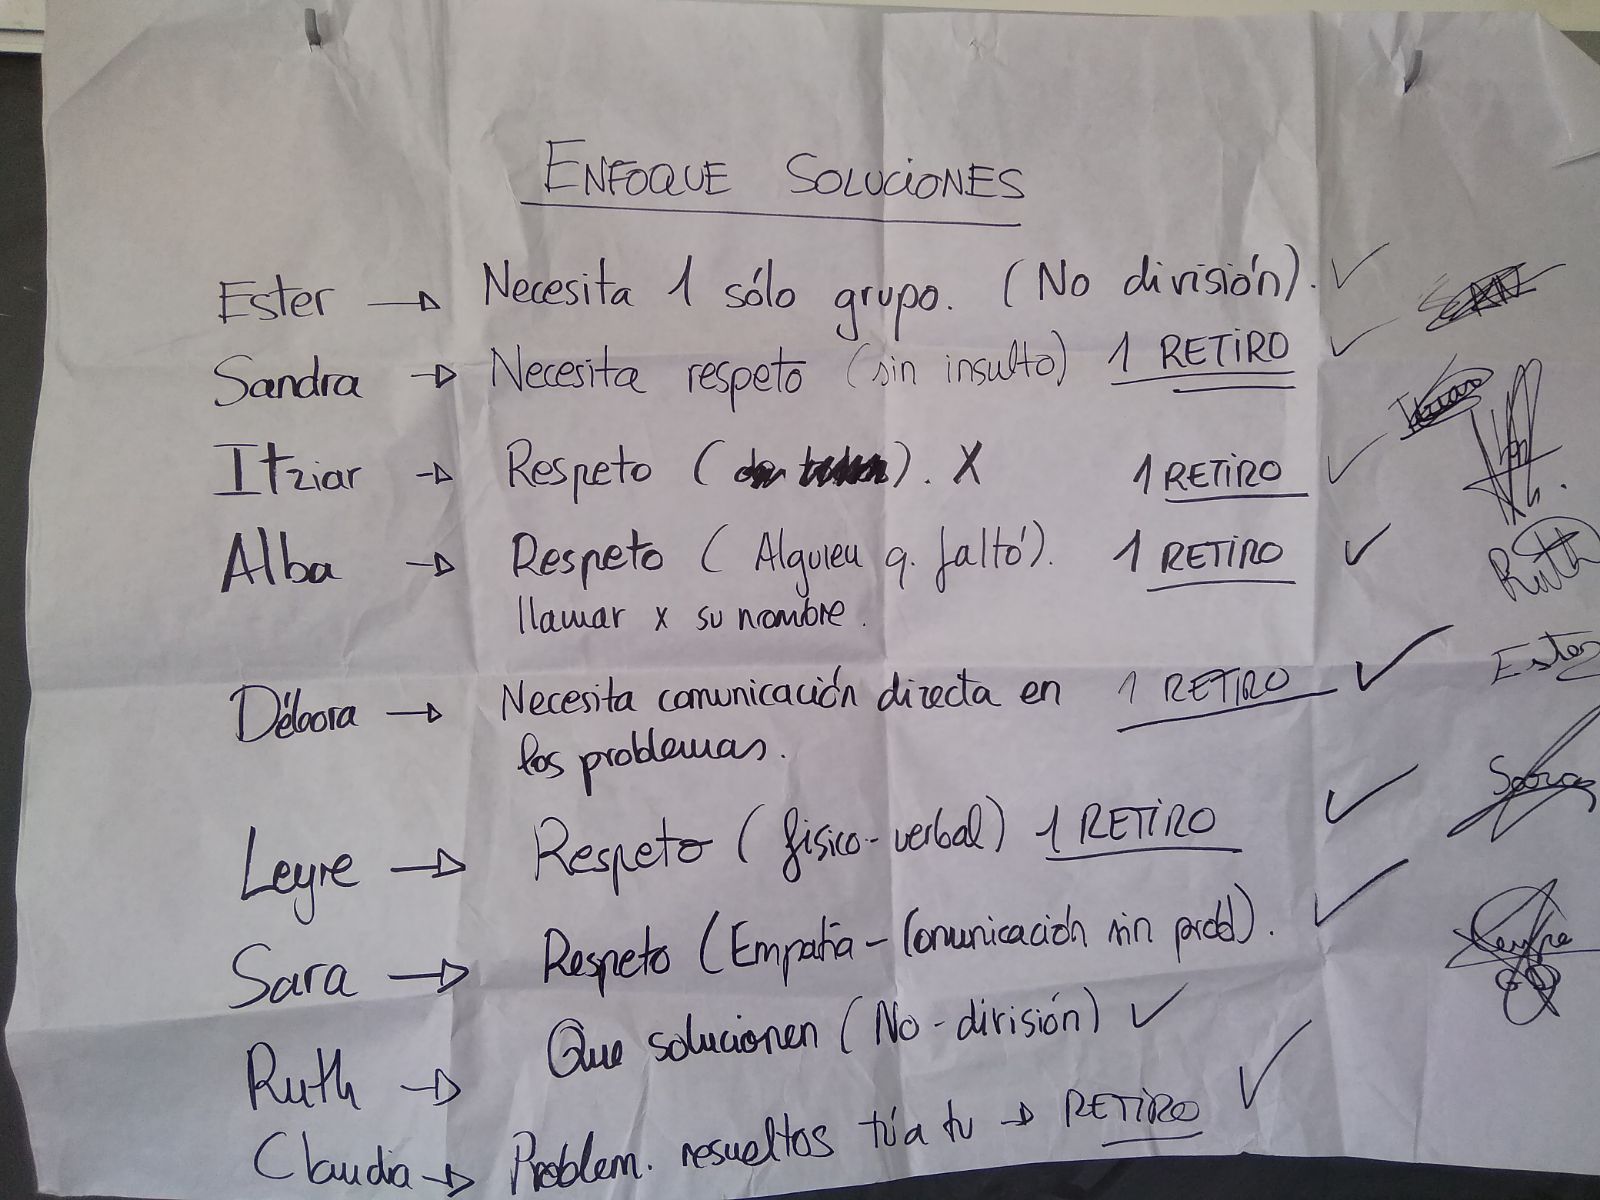 ENFOQUE SOLUCIONES
Ester → Necesita 1 sólo grupo. (No división). ✓
Sandra → Necesita respeto (sin insulto) 1 RETIRO ✓
Itziar → Respeto ( ). X 1 RETIRO ✓
Alba → Respeto ( Alguien q. faltó). 1 RETIRO ✓
llamar x su nombre.
Débora → Necesita comunicación directa en 1 RETIRO ✓
los problemas.
Leyre → Respeto ( físico-verbal) 1 RETIRO ✓
Sara → Respeto (Empatía - Comunicación sin probl). ✓
Ruth → Que solucionen (No-división) ✓
Claudia → Problem. resueltos tú a tu → RETIRO ✓
Itziar
Ruth
Ester
Sara
Leyre